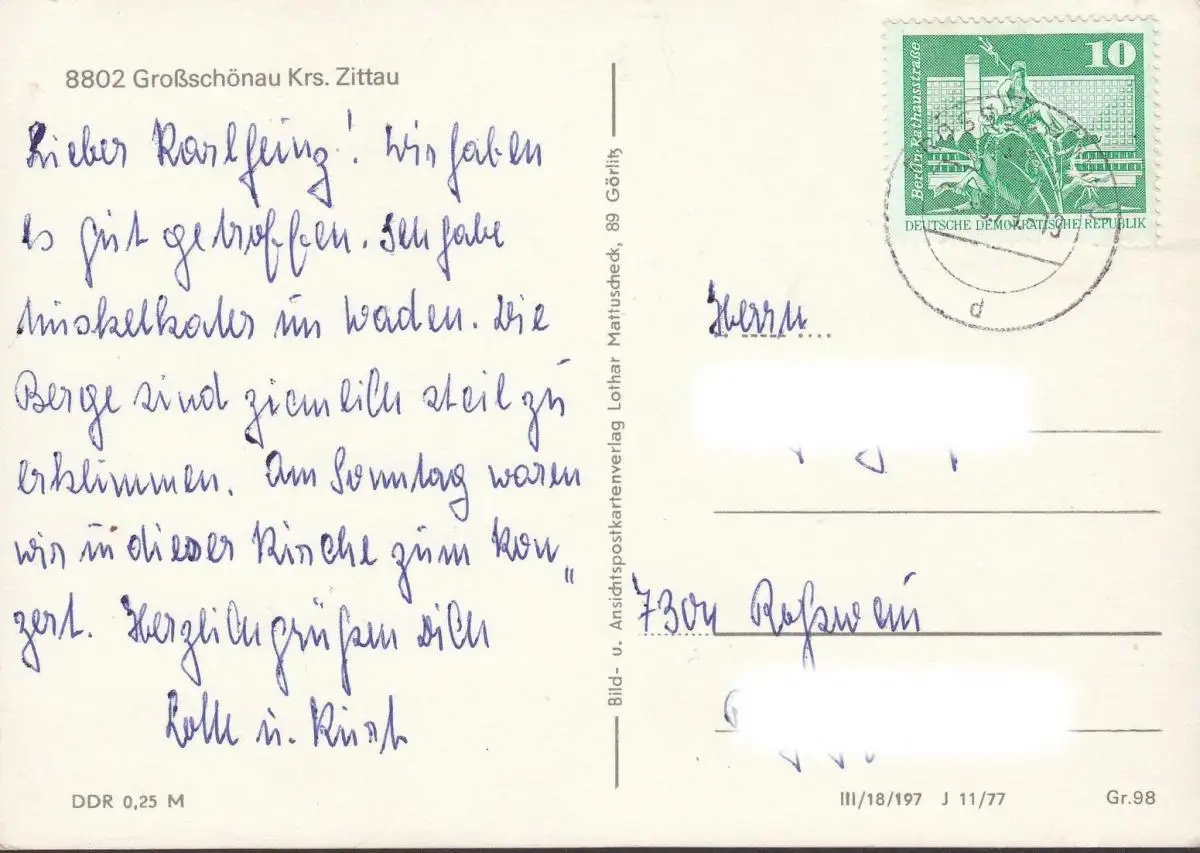 8802 Großschönau Krs. Zittau
Lieber Karlheinz! Wir haben
es gut getroffen. Ich habe
Muskelkater in Waden. Die
Berge sind ziemlich steil zu
erklimmen. Am Sonntag waren
wir in dieser Kirche zum Kon„
zert. Herzlich grüßen Dich
u. Kurt
DDR 0,25 M
Bild- u. Ansichtspostkartenverlag Lothar Mattuscheck, 89 Görlitz
10
Berlin, Rathausstraße
DEUTSCHE DEMOKRATISCHE REPUBLIK
d
Herrn
7304 Roßwein
III/18/197 J 11/77
Gr.98